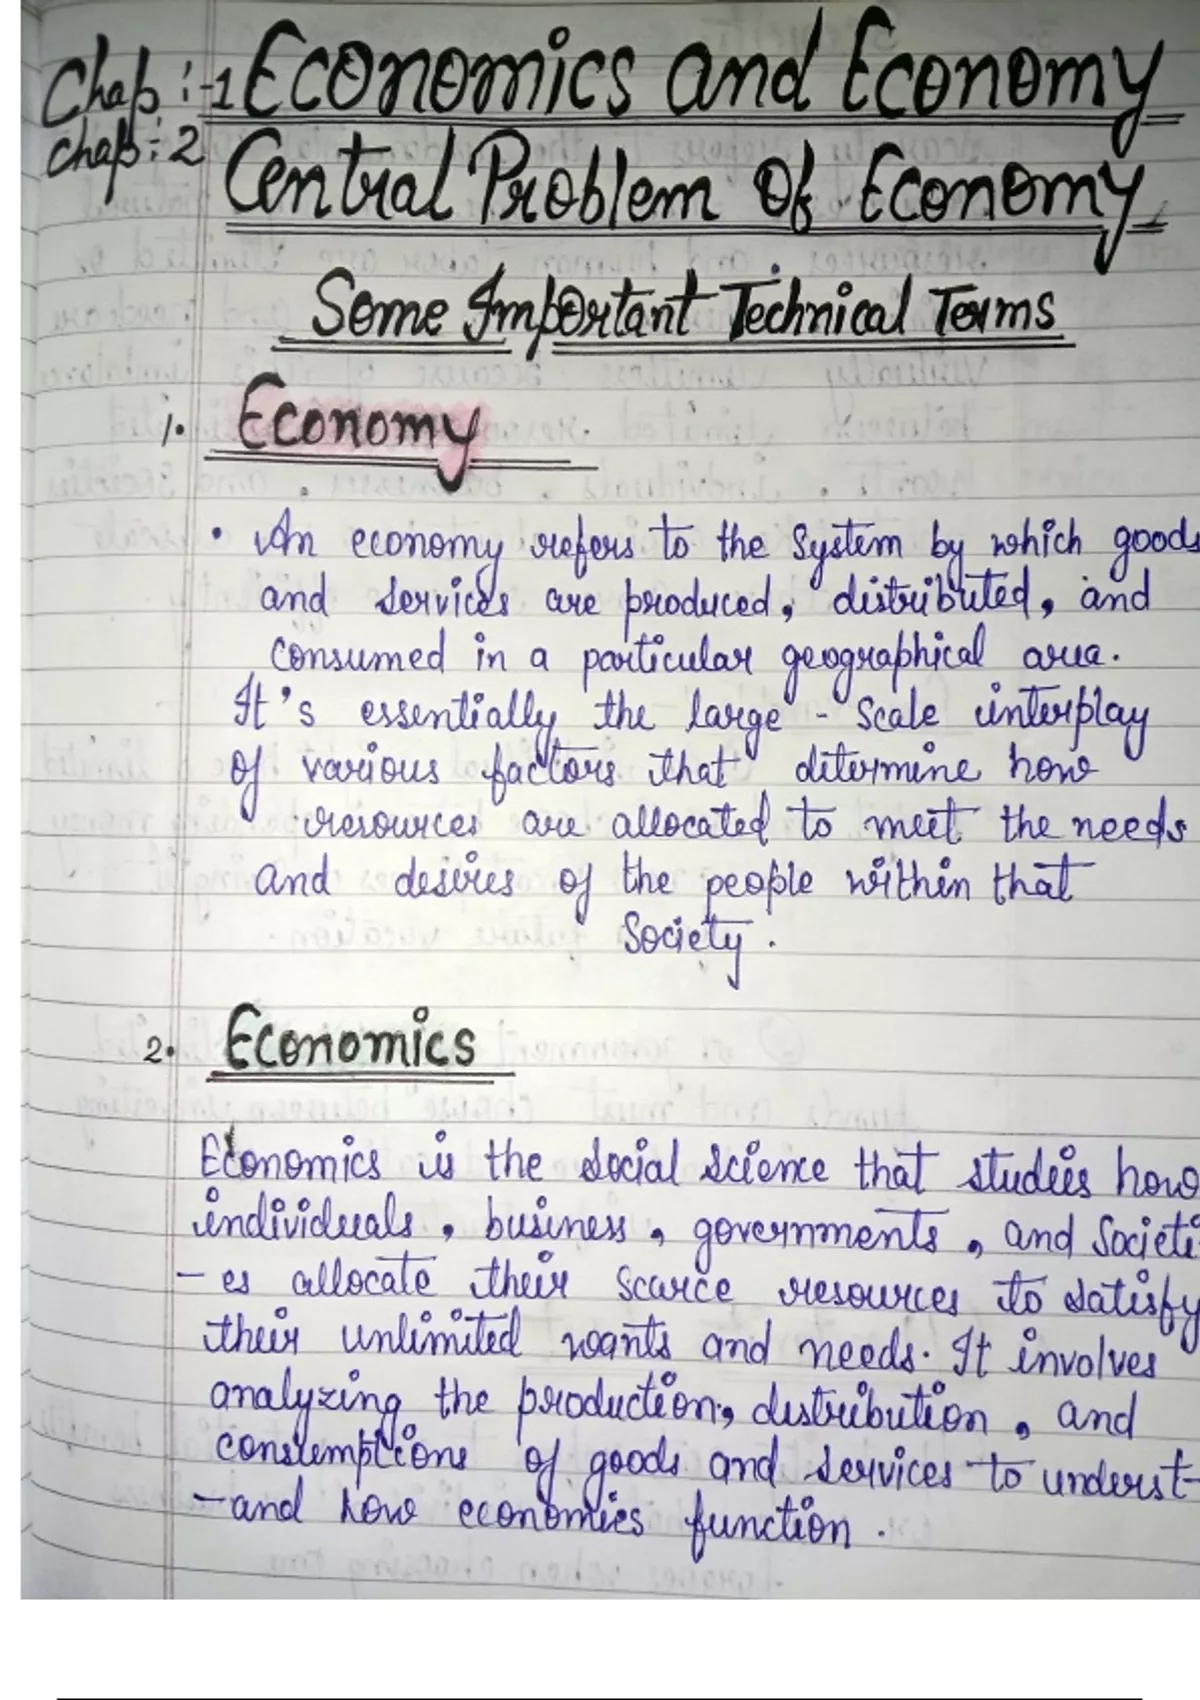 Chap :-1 Economics and Economy
Chap : 2 Central Problem Of Economy
Some Important Technical Terms
1. Economy
• An economy refers to the System by which goods
and services are produced, distributed, and
consumed in a particular geographical area.
It's essentially the large - scale interplay
of various factors that ditermine how
resources are allocated to meet the needs
and desires of the people within that
Society.
2. Economics
Economics is the social science that studies how
individuals, business, governments, and Societi
- es allocate their scarce resources to satisfy
their unlimited wants and needs. It involves
analyzing the production, distribution, and
consumptions of goods and services to underst-
-and how economies function.